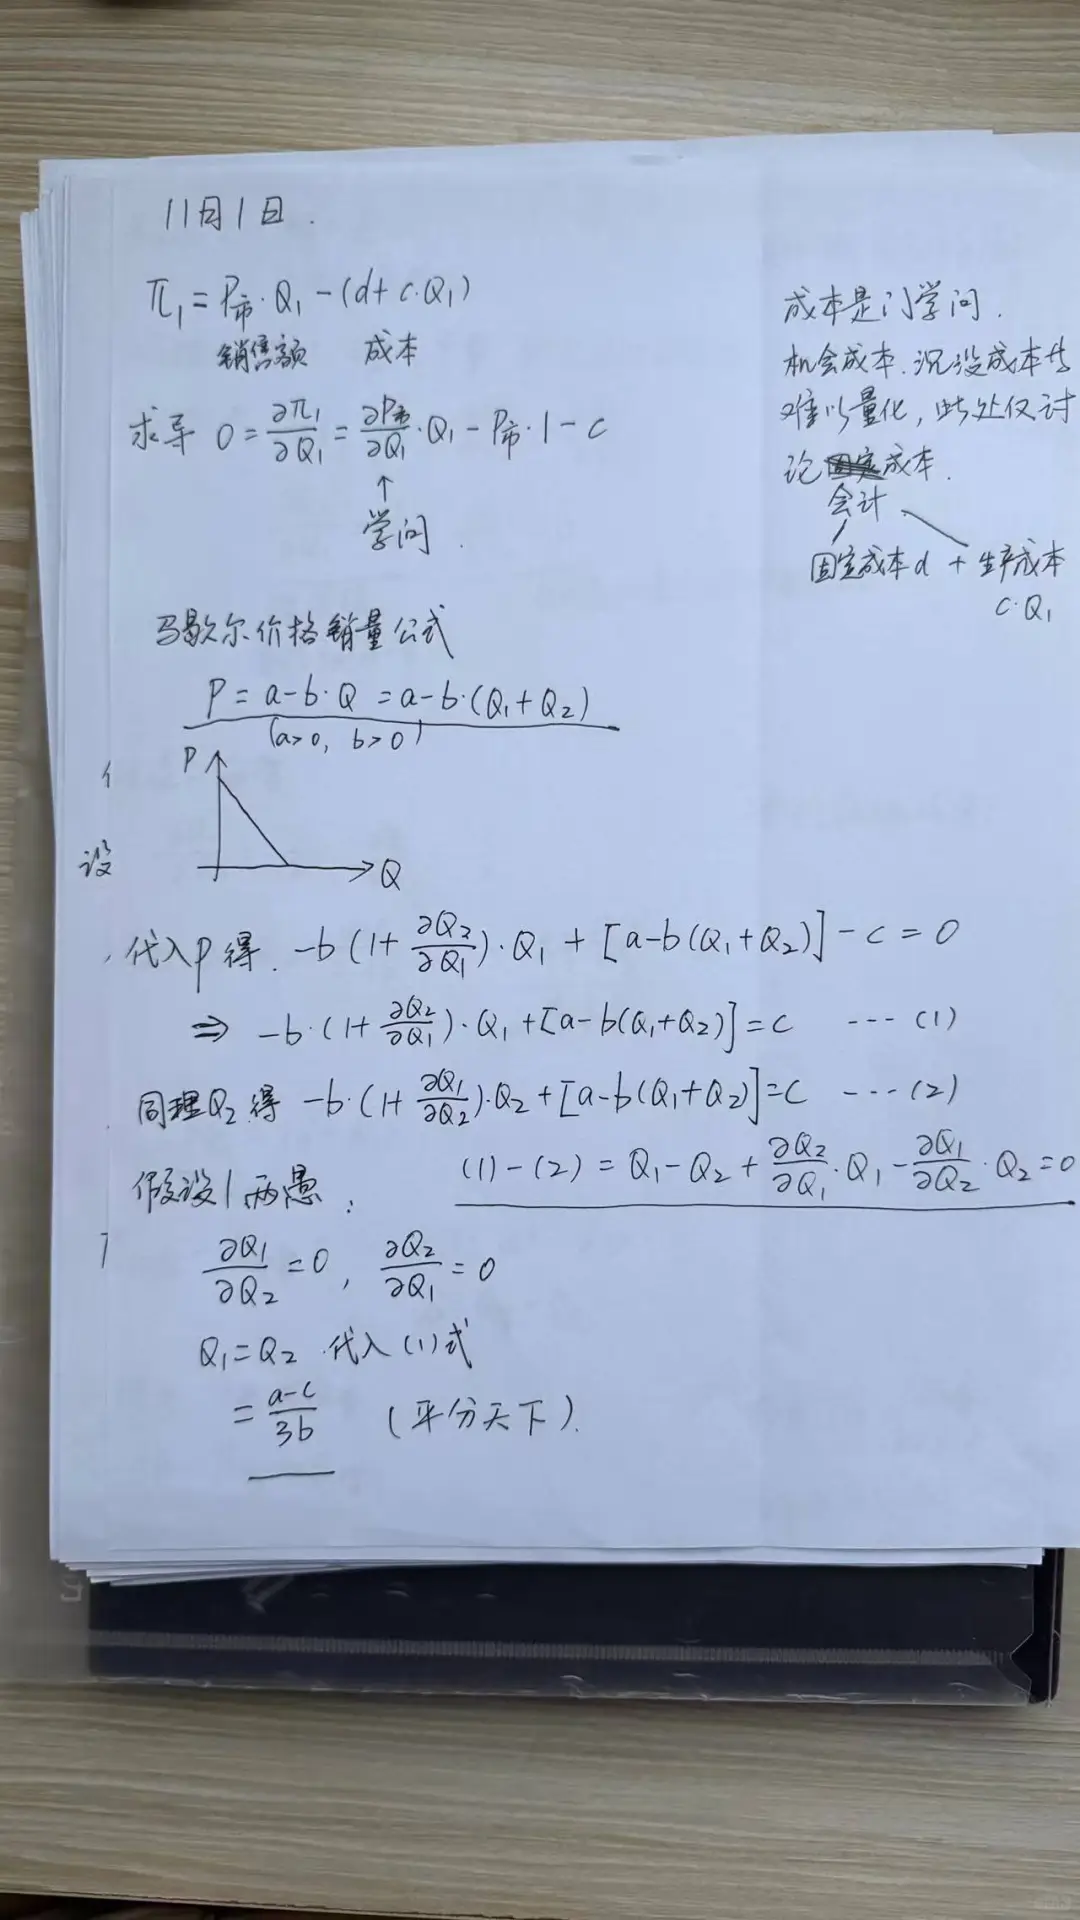 11月1日.
π₁ = P市·Q₁ - (d + c·Q₁)
销售额 成本
求导 0 = ∂π₁/∂Q₁ = ∂P市/∂Q₁·Q₁ - P市·1 - c
↑
学问.
成本是门学问.
机会成本.沉没成本
难以量化，此处仅讨
论成本.
会计
固定成本d + 生产成本
c·Q₁
马歇尔价格销量公式
P = a-b·Q = a-b·(Q₁+Q₂)
(a>0, b>0)
P
Q
设
代入P得. -b(1+∂Q₂/∂Q₁)·Q₁ + [a-b(Q₁+Q₂)] - c = 0
⇒ -b·(1+∂Q₂/∂Q₁)·Q₁ + [a-b(Q₁+Q₂)] = c ---(1)
同理Q₂得 -b·(1+∂Q₁/∂Q₂)·Q₂ + [a-b(Q₁+Q₂)] = c ---(2)
(1)-(2) = Q₁-Q₂ + ∂Q₂/∂Q₁·Q₁ - ∂Q₁/∂Q₂·Q₂ = 0
假设1 两愚:
∂Q₁/∂Q₂ = 0, ∂Q₂/∂Q₁ = 0
Q₁=Q₂ .代入(1)式
= a-c/3b (平分天下).